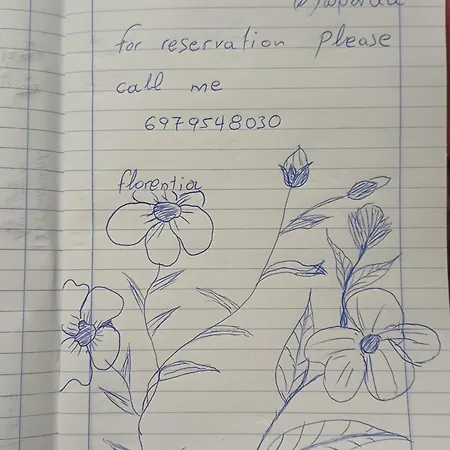 for reservation please
call me
6979548030
florentia